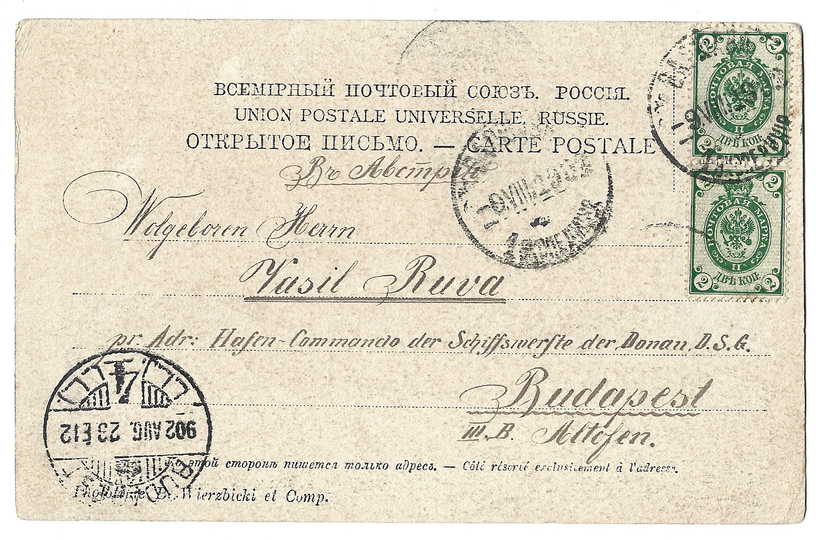 ВСЕМІРНЫЙ ПОЧТОВЫЙ СОЮЗЪ. РОССІЯ.
UNION POSTALE UNIVERSELLE, RUSSIE.
ОТКРЫТОЕ ПИСЬМО. — CARTE POSTALE
Въ Австрію
Wolgeboren Herrn
Vasil Ruva
pr. Adr: Hafen-Commando der Schiffswerfte der Donau, D.S.G.
Budapest
III. B. Altofen.
этой сторонѣ пишется только адресъ. — Côté réservé exclusivement à l'adresse.
Wierzbicki et Comp.
2 2
ПОЧТОВАЯ МАРКА
II
ДВѢ КОП.
2 2
2 2
ПОЧТОВАЯ МАРКА
II
ДВѢ КОП.
2 2
VIII
902 AUG. 23 É12
4